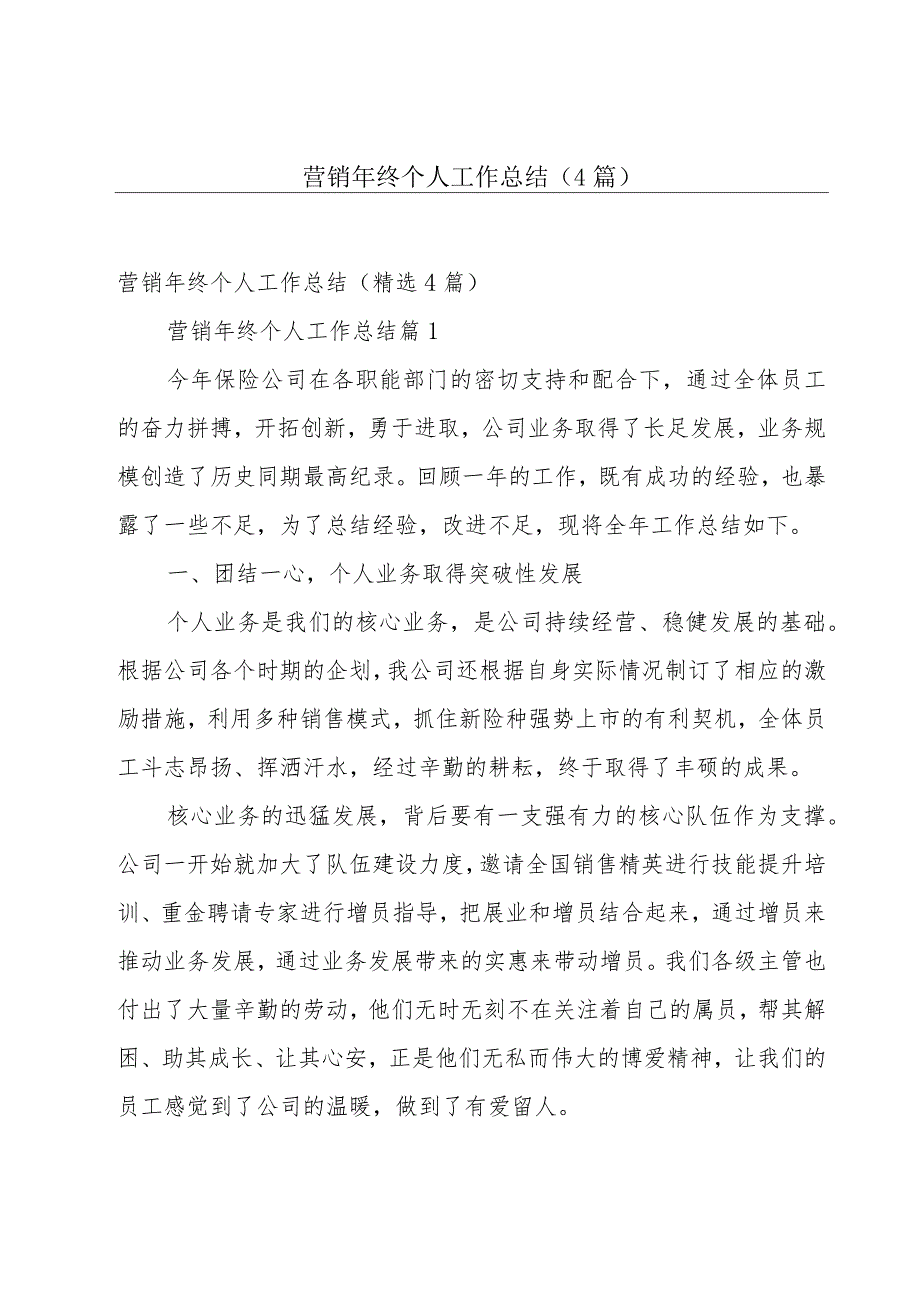 营销年终个人工作总结（4 篇）
营销年终个人工作总结（精选 4 篇）
营销年终个人工作总结篇 1
今年保险公司在各职能部门的密切支持和配合下，通过全体员工
的奋力拼搏，开拓创新，勇于进取，公司业务取得了长足发展，业务规
模创造了历史同期最高纪录。回顾一年的工作，既有成功的经验，也暴
露了一些不足，为了总结经验，改进不足，现将全年工作总结如下。
一、团结一心，个人业务取得突破性发展
个人业务是我们的核心业务，是公司持续经营、稳健发展的基础。
根据公司各个时期的企划，我公司还根据自身实际情况制订了相应的激
励措施，利用多种销售模式，抓住新险种强势上市的有利契机，全体员
工斗志昂扬、挥洒汗水，经过辛勤的耕耘，终于取得了丰硕的成果。
核心业务的迅猛发展，背后要有一支强有力的核心队伍作为支撑。
公司一开始就加大了队伍建设力度，邀请全国销售精英进行技能提升培
训、重金聘请专家进行增员指导，把展业和增员结合起来，通过增员来
推动业务发展，通过业务发展带来的实惠来带动增员。我们各级主管也
付出了大量辛勤的劳动，他们无时无刻不在关注着自己的属员，帮其解
困、助其成长、让其心安，正是他们无私而伟大的博爱精神，让我们的
员工感觉到了公司的温暖，做到了有爱留人。